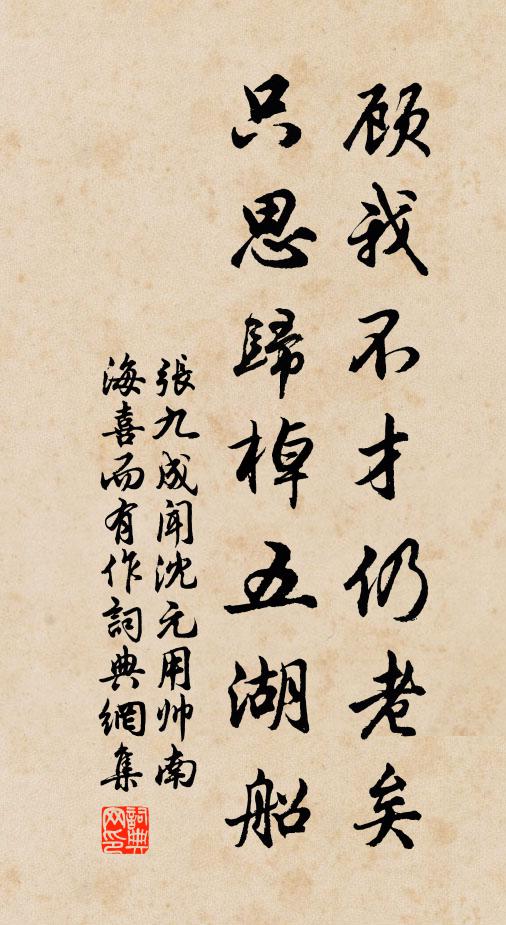 顾我不才仍老矣
只思歸棹五湖船
張九成闻沈元用帅南
海喜而有作詞典網集
詞典网印